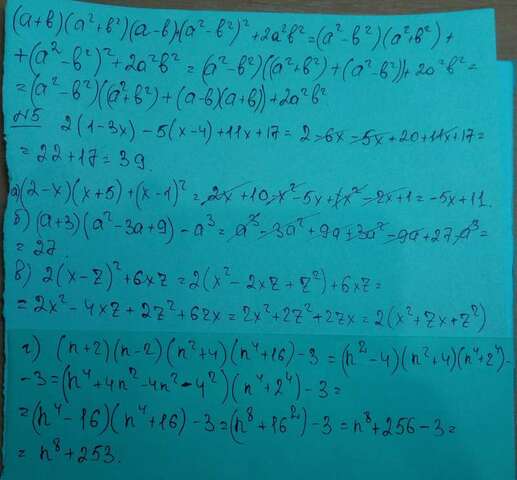 (a+b)(a²+b²)(a-b)+(a²-b²)²+2a²b²=(a²-b²)(a²+b²)+
+(a²-b²)²+2a²b²=(a²-b²)((a²+b²)+(a²-b²))+2a²b²=
=(a²-b²)((a²+b²)+(a-b)(a+b))+2a²b²
№5 2(1-3x)-5(x-4)+11x+17=2-6x-5x+20+11x+17=
=22+17=39.
а)(2-x)(x+5)+(x-1)²=2x+10-x²-5x+x²-2x+1=-5x+11.
б)(a+3)(a²-3a+9)-a³=a³-3a²+9a+3a²-9a+27-a³=
=27.
в) 2(x-z)²+6xz=2(x²-2xz+z²)+6xz=
=2x²-4xz+2z²+6zx=2x²+2z²+2zx=2(x²+zx+z²)
г) (n+2)(n-2)(n²+4)(n⁴+16)-3=(n²-4)(n²+4)(n⁴+2⁴)-
-3=(n⁴+4n²-4n²-4²)(n⁴+2⁴)-3=
=(n⁴-16)(n⁴+16)-3=(n⁸+16²)-3=n⁸+256-3=
=n⁸+253.